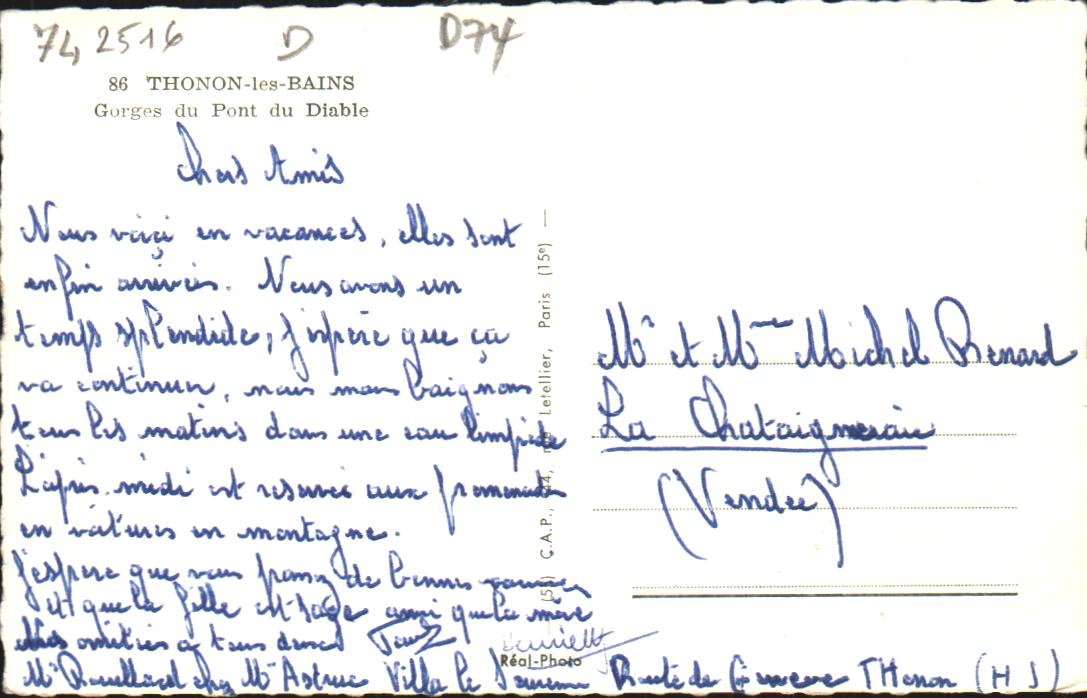 74 2516 D D74
86 THONON-les-BAINS
Gorges du Pont du Diable
Chers Amis
Nous voiçi en vacances, elles sont
enfin arrivées. Nous avons un
temps splendide, j'espère que ça
va continuer, nous nous baignons
tous les matins dans une eau limpide
L'après-midi est reservée aux promenades
en voitures en montagne.
J'espere que vous passez de bonnes vacances
et que la fille est sage ainsi que la mère
Mes amitiés a tous deux
Mr Rouillard chez Mr Astruc Villa le Route de Geneve THonon (H S)
(55) C.A.P., 44, Letellier, Paris (15e) —
Réal-Photo
Mr et Mme Michel Renard
La Chataigneraie
(Vendee)